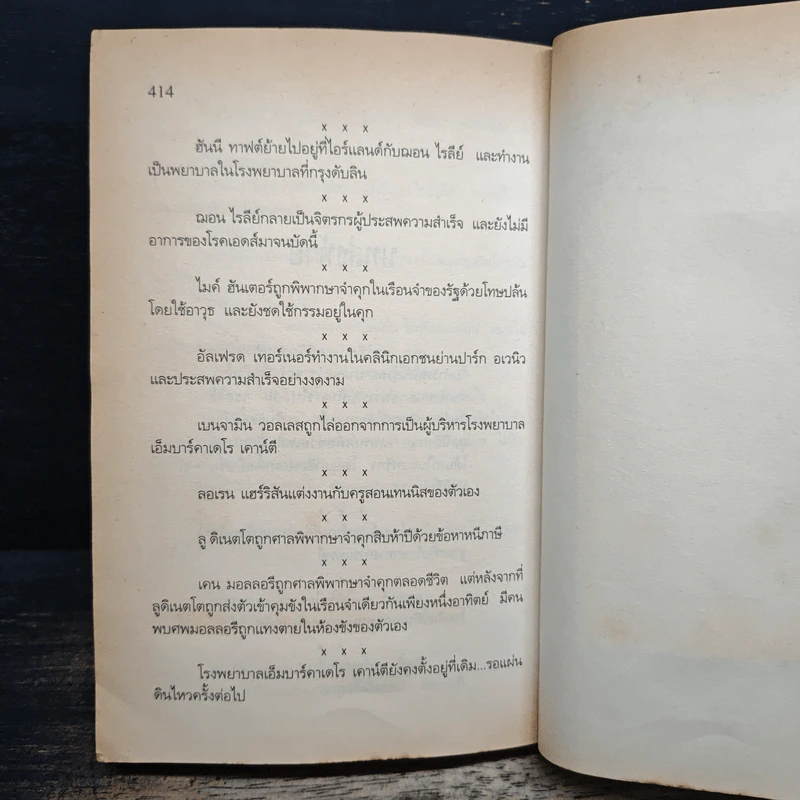 414
x x x
ฮันนี่ ทาฟต์ย้ายไปอยู่ที่ไอร์แลนด์กับฌอน ไรลีย์ และทำงาน
เป็นพยาบาลในโรงพยาบาลที่กรุงดับลิน
x x x
ฌอน ไรลีย์กลายเป็นจิตรกรผู้ประสพความสำเร็จ และยังไม่มี
อาการของโรคเอดส์มาจนบัดนี้
x x x
ไมค์ ฮันเตอร์ถูกพิพากษาจำคุกในเรือนจำของรัฐด้วยโทษปล้น
โดยใช้อาวุธ และยังชดใช้กรรมอยู่ในคุก
x x x
อัลเฟรด เทอร์เนอร์ทำงานในคลินิกเอกชนย่านปาร์ก อเวนิว
และประสพความสำเร็จอย่างงดงาม
x x x
เบนจามิน วอลเลสถูกไล่ออกจากการเป็นผู้บริหารโรงพยาบาล
เอ็มบาร์คาเดโร เคาน์ตี
x x x
ลอเรน แฮร์ริสันแต่งงานกับครูสอนเทนนิสของตัวเอง
x x x
ลู ดิเนตโตถูกศาลพิพากษาจำคุกสิบห้าปีด้วยข้อหาหนีภาษี
x x x
เคน มอลลอรีถูกศาลพิพากษาจำคุกตลอดชีวิต แต่หลังจากที่
ลูดิเนตโตถูกส่งตัวเข้าคุมขังในเรือนจำเดียวกันเพียงหนึ่งอาทิตย์ มีคน
พบศพมอลลอรีถูกแทงตายในห้องขังของตัวเอง
x x x
โรงพยาบาลเอ็มบาร์คาเดโร เคาน์ตียังคงตั้งอยู่ที่เดิม...รอแผ่น
ดินไหวครั้งต่อไป